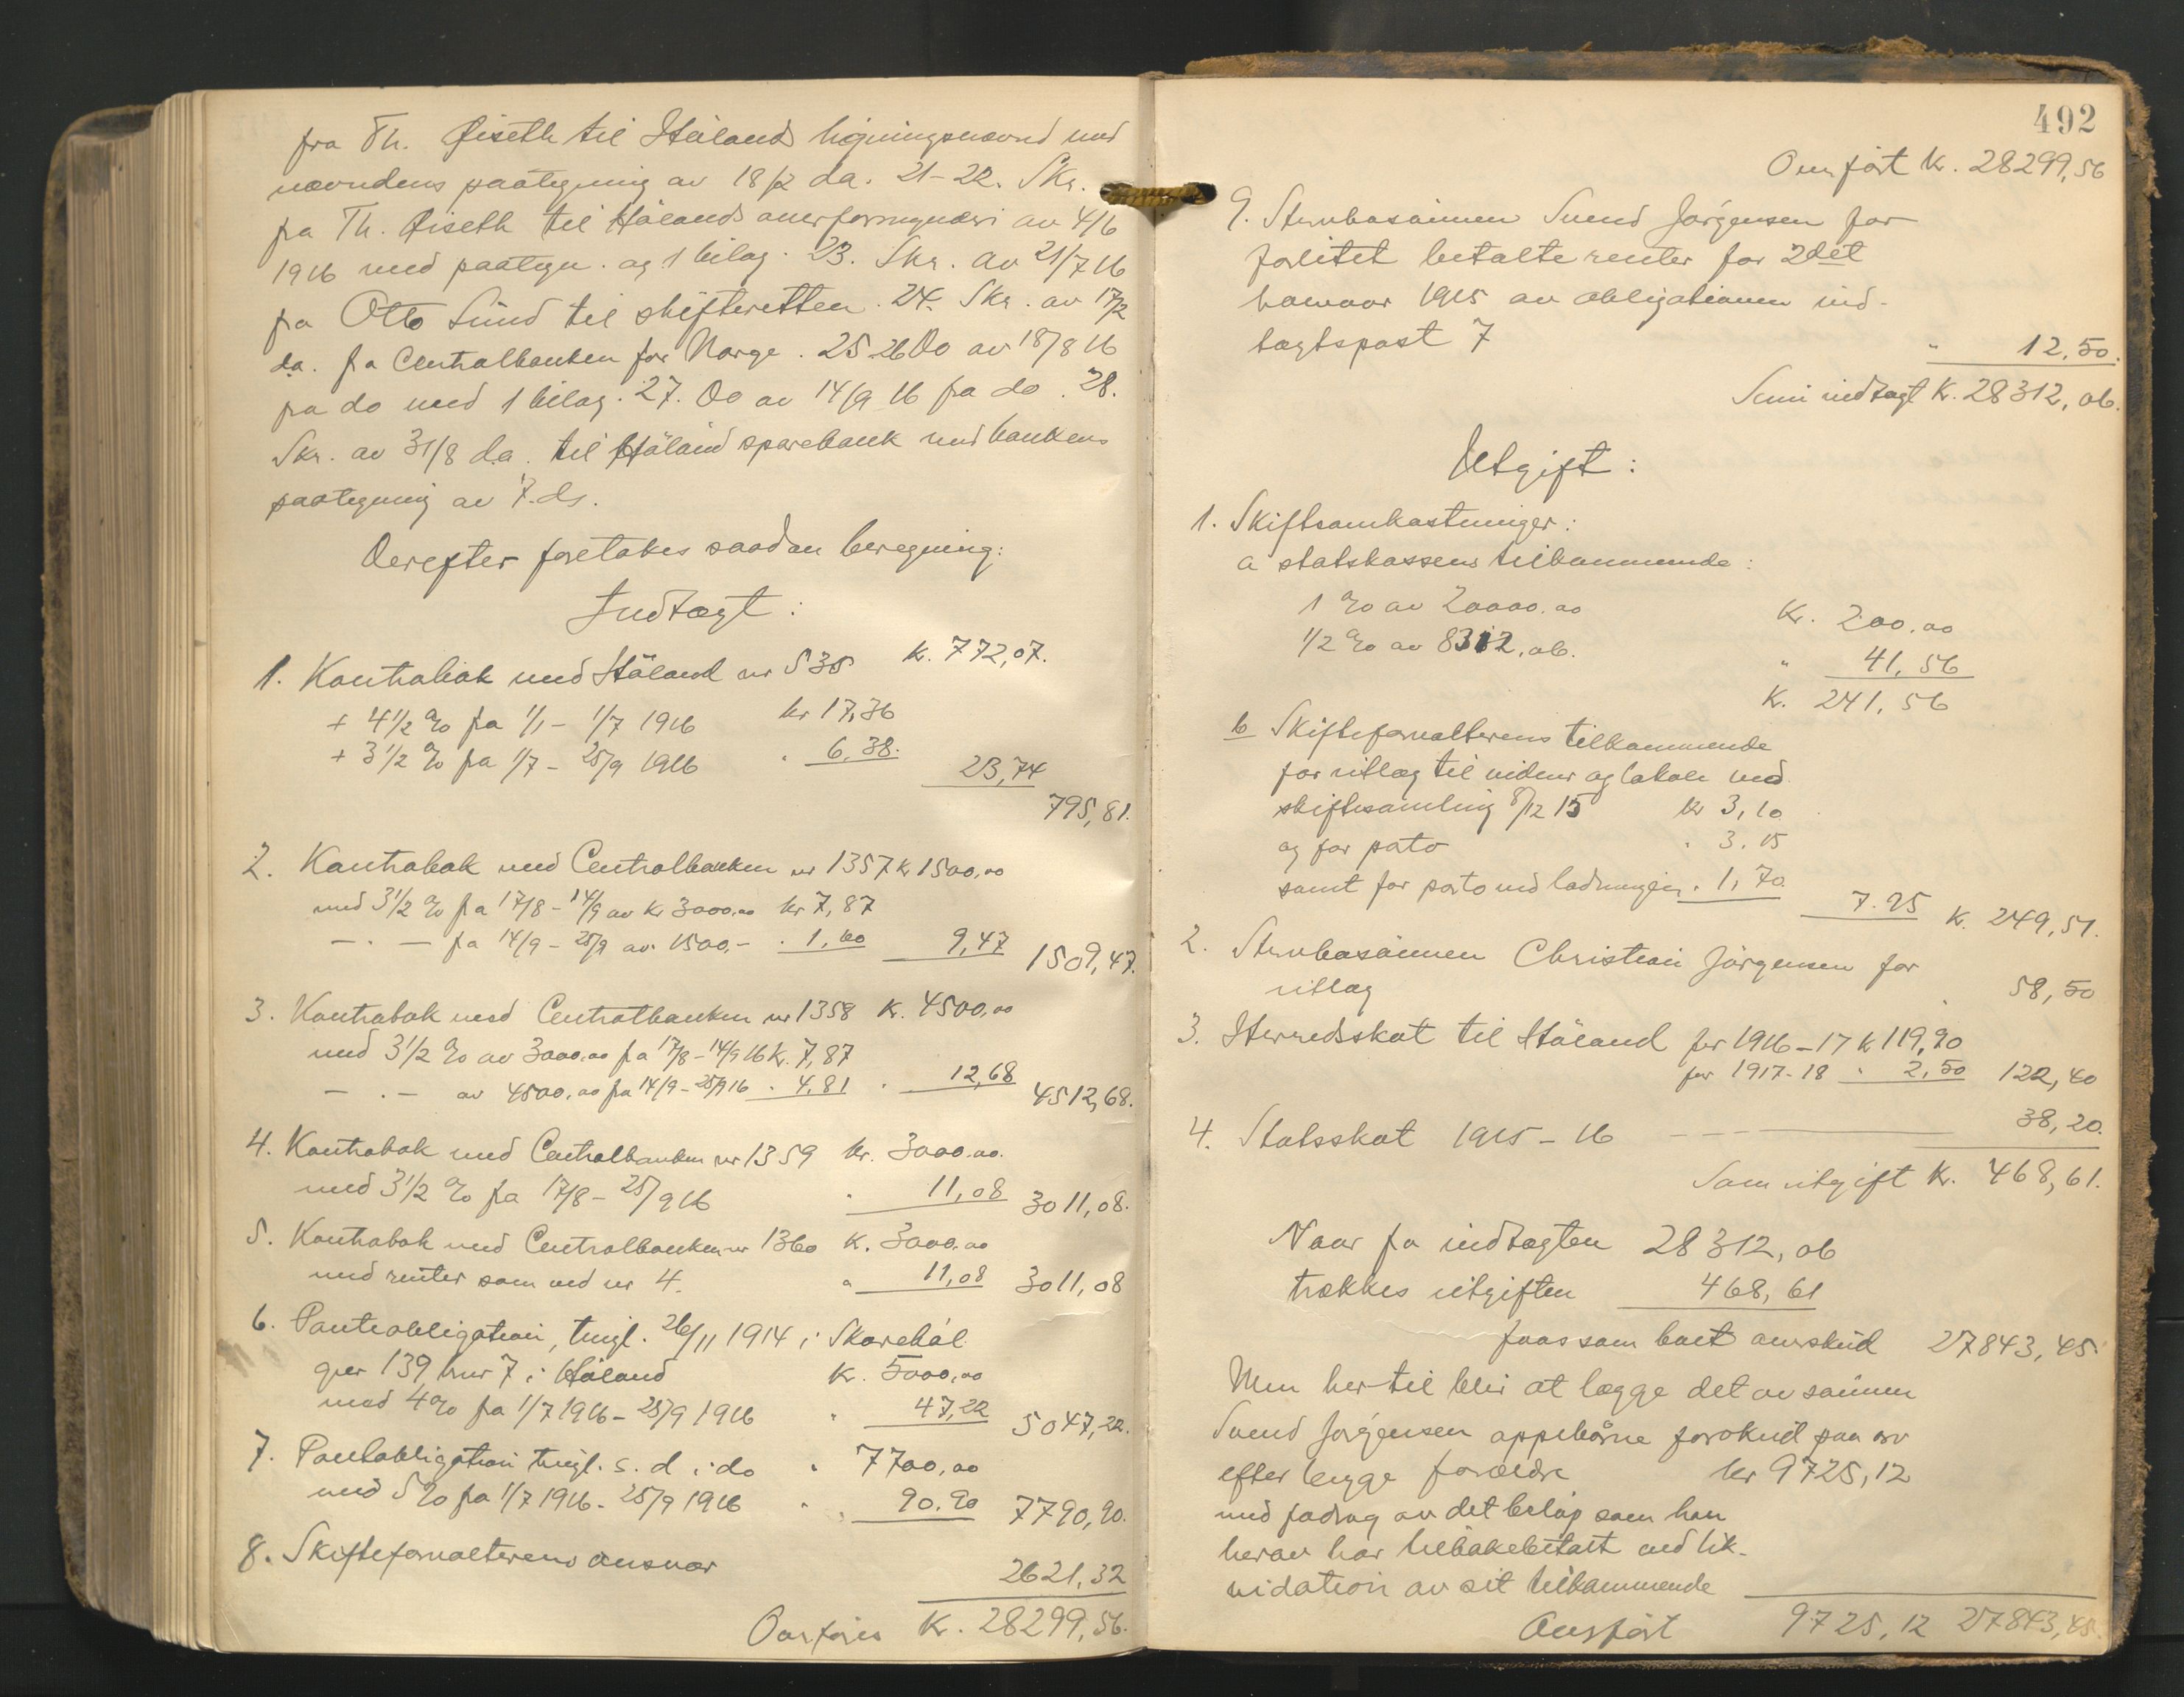 fra Th. Øiseth til Høland ligningsnævnd med
nævndens paategning av 18/2 d.a. 21-22. Skr.
fra Th. Øiseth til Hølands overformynderi av 4/6
1916 med paategn. og 1 bilag. 23. Skr. av 21/7 16
fra Otto Lund til skifteretten. 24. Skr. av 17/2
d.a. fra Centralbanken for Norge. 25-26 Do av 18/8 16
fra do med 1 bilag. 27. Do av 14/9 16 fra do. 28.
Skr. av 31/8 d.a. til Høland sparebank med bankens
paategning av 7. ds.
Derefter foretokes saadan beregning:
Indtægt:
1. Kontrabok med Høland nr 535 K. 772,07.
+ 4 1/2 % fra 1/1 - 1/7 1916 kr 17,36
+ 3 1/2 % fra 1/7 - 25/9 1916 " 6,38. 23,74
795,81.
2. Kontrabok med Centralbanken nr 1357 K 1500,00
med 3 1/2 % fra 17/8 - 14/9 av kr 3000,00 kr 7,87
- . - fra 14/9 - 25/9 av 1500,- . 1,60 9,47 1509,47.
3. Kontrabok med Centralbanken nr 1358 K. 4500,00
med 3 1/2 % av 3000,00 fra 17/8 - 14/9 16 K. 7,87
- . - av 4500,00 fra 14/9 - 25/9 16 . 4,81 . 12,68 4512,68.
4. Kontrabok med Centralbanken nr 1359 kr. 3000,00.
med 3 1/2 % fra 17/8 - 25/9 16 . 11,08 3011,08.
5. Kontrabok med Centralbanken nr 1360 K. 3000,00
med renter som ved nr 4. " 11,08 3011,08
6. Panteobligation, tingl. 26/11 1914 i Skarebøl
gnr 139 bnr 7 i Høland K. 5000,00
med 4 % fra 1/7 1916 - 25/9 1916 " 47,22 5047,22.
7. Panteobligation tingl. s. d. i do " 7700,00
med 5 % fra 1/7 1916 - 25/9 1916 " 90,90 7790,90.
8. Skifteforvalterens ansvar 2621,32
Overføres K. 28299,56.
492
Overført K. 28299,56
9. Stervbosønnen Svend Jørgensen for
forlitet betalte renter for 2det
halvaar 1915 av obligationen ind-
tægtspost 7 " 12,50.
Sum indtægt K. 28312,06.
Utgift:
1. Skifteomkostninger:
a statskassens tilkommende:
1 % av 20000.00 Kr. 200.00
1/2 % av 8312,06. " 41,56
K. 241,56
b Skifteforvalterens tilkommende
for utlæg til vidner og lokale ved
skiftesamling 8/12 15 kr 3,10
og for porto . 3.15
samt for porto ved lodningen . 1,70 7.95 K. 249,51.
2. Stervbosønnen Christian Jørgensen for
utlæg " 58,50
3. Herredsskat til Høland for 1916-17 K 119,90
for 1917-18 . 2,50 122,40
4. Statsskat 1915-16 - - - 38,20.
Sum utgift K. 468,61.
Naar fra indtægten 28312,06
trækkes utgiften 468,61
faaes som boets overskud 27843,45
Men hertil blir at lægge det av sønnen
Svend Jørgensen oppebårne forskud paa arv
efter begge forældre kr 9725,12
med fradrag av det beløp som han
herav har tilbakebetalt ved lik-
vidation av sit tilkommende
Overført 9725,12 27843,45.